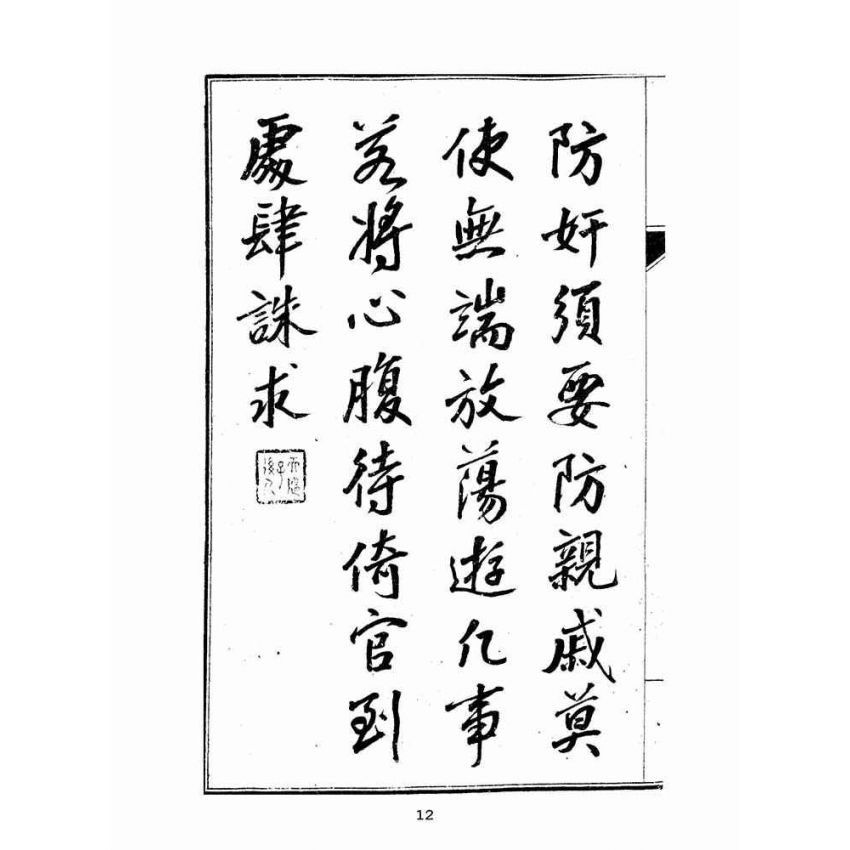 防奸須要防親戚莫
使無端放蕩遊凡事
若將心腹待倚官到
處肆誅求
12